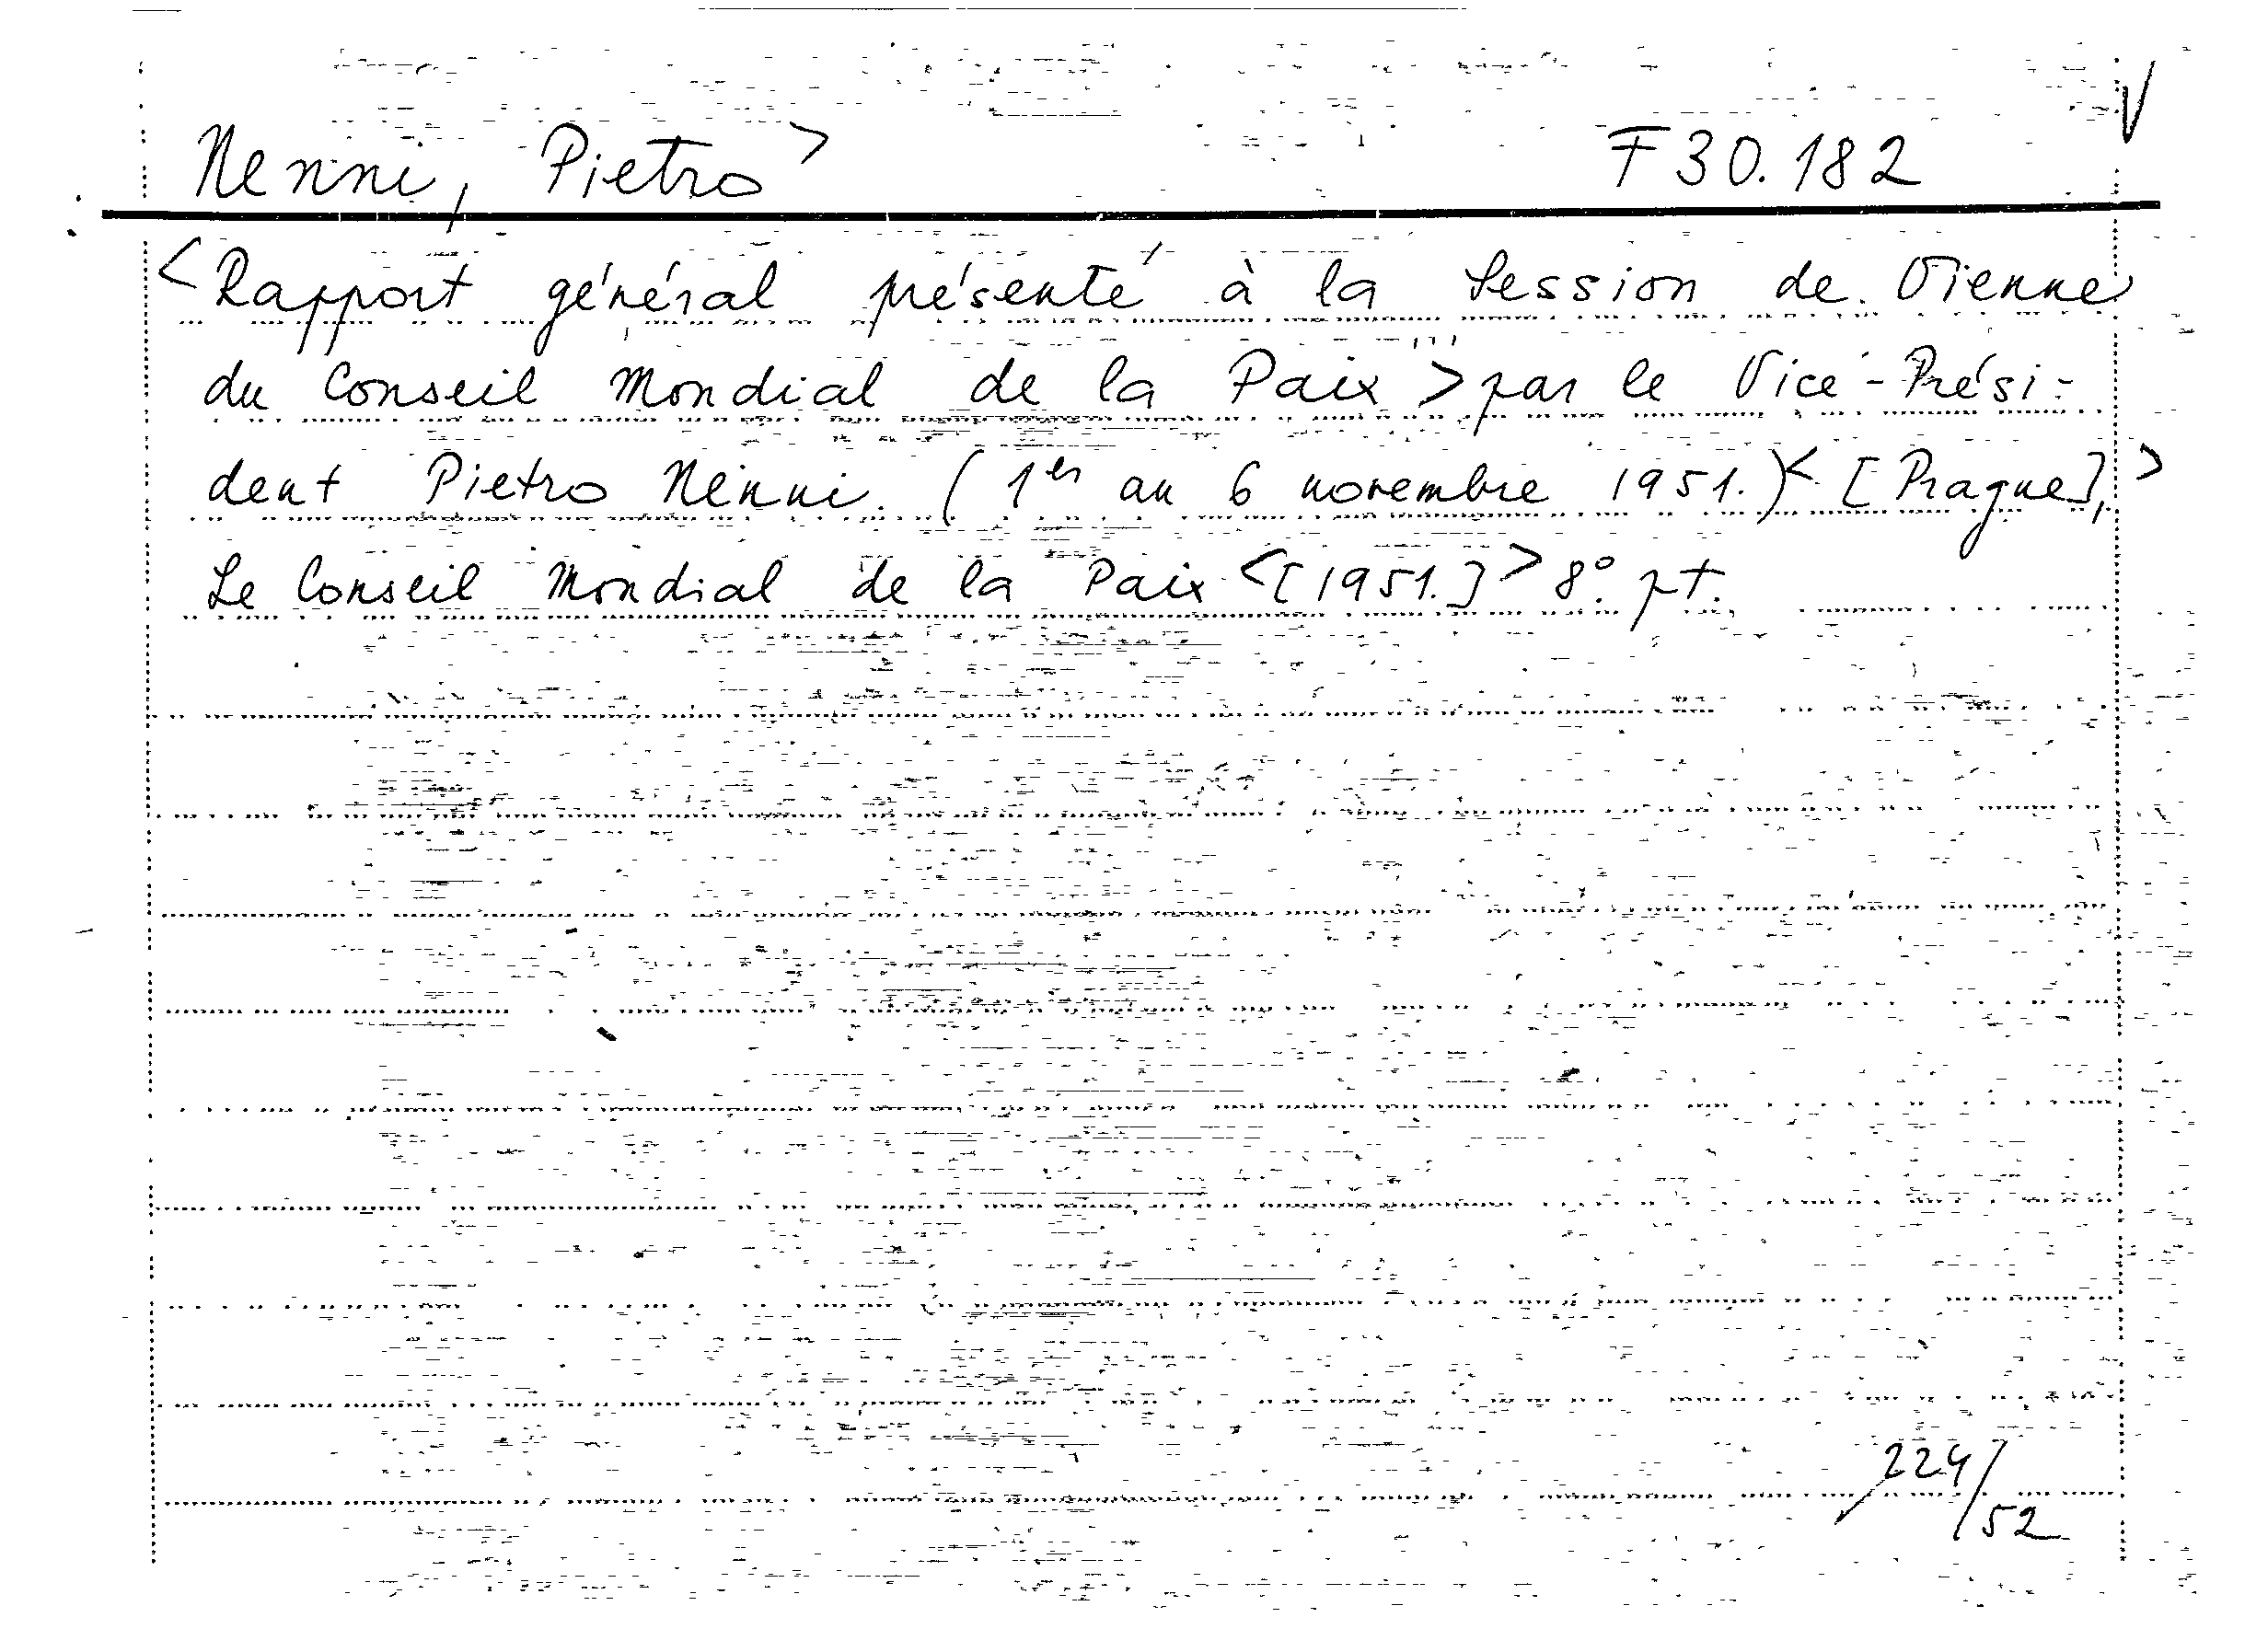 Nenni, Pietro> F 30.182 √
<Rapport général présenté à la Session de Vienne
du Conseil Mondial de la Paix> par le Vice-Prési-
dent Pietro Nenni. (1er au 6 novembre 1951.)< [Prague],>
Le Conseil Mondial de la Paix <[1951.]> 8°. pt.
224/52